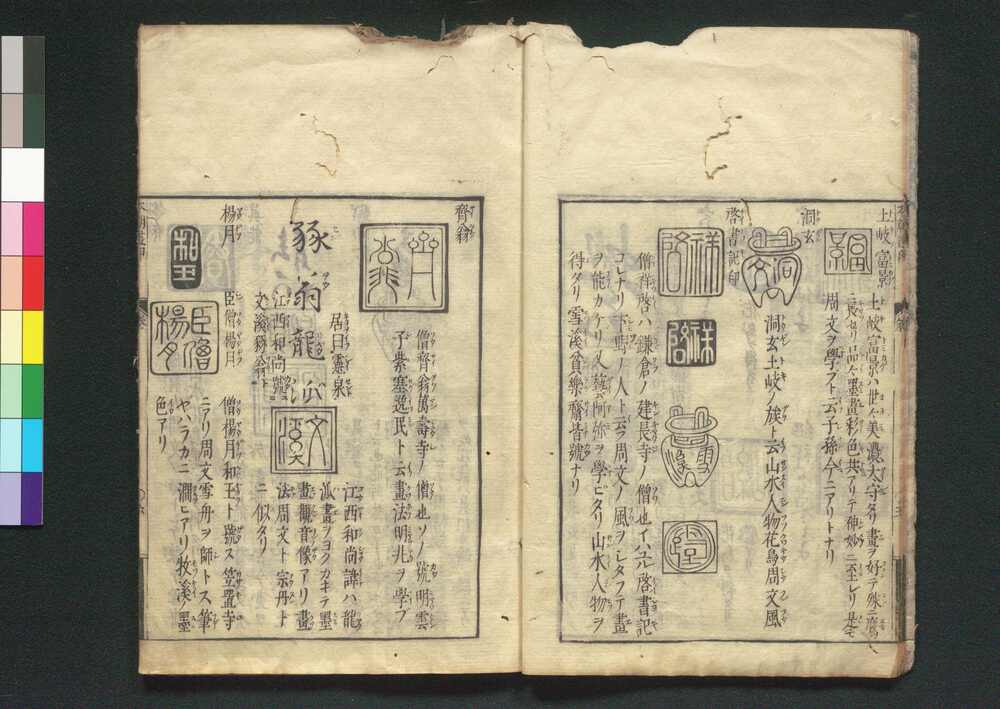 土岐富景
富景
土岐富景ハ世々美濃太守タリ畫ヲ好テ殊ニ鷹ニ
長セリ品々墨畫彩色共アリテ神妙ニ至レリ是モ
周文ヲ學フト云子孫今ニアリトナリ
洞玄
洞玄
洞玄土岐ノ族ト云山水人物花鳥周文風
啓書記印
祥啓
祥啓
雪溪
僧祥啓ハ鎌倉ノ建長寺ノ僧也イハユル啓書記
コレナリ下野ノ人ト云フ周文ノ風ヲシタフテ畫
ヲ能カケリ又藝阿弥ヲ學ビタリ山水人物ヲ
得タリ雪溪貧樂齋皆號ナリ
齊翁
僧齊翁萬壽寺ノ僧也ソノ號明雲
子紫塞逸民ト云畫法明兆ヲ學ブ
居日靈泉
豩翁龍派
江西和尚號
文溪豩翁ト
文溪
江西和尚諱ハ龍
派畫ヲヨクカキテ墨
畫觀音像アリ畫
法周文ト宗丹ト
ニ似タリ
楊月
和玉
臣僧楊月
臣僧楊月
僧楊月和玉ト號ス笠置寺
ニアリ周文雪舟ヲ師トス筆
ヤハラカニ潤ヒアリ牧溪墨
色アリ